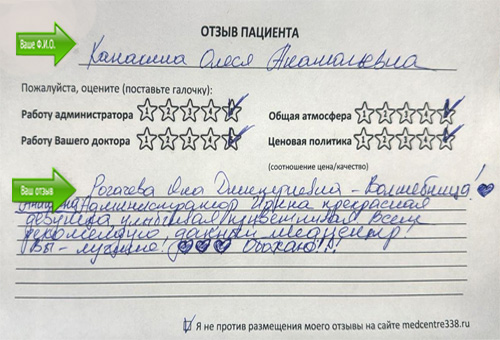 ОТЗЫВ ПАЦИЕНТА
Ваше Ф.И.О.
Канасина Олеся Анатольевна
Пожалуйста, оцените (поставьте галочку):
Работу администратора 1 2 3 4 Общая атмосфера
Работу Вашего доктора Ценовая политика
(соотношение цена/качество)
Ваш отзыв
Рогачева Яна Дмитриевна - Волшебница!
Администратор прекрасная
девушка улыбчивая приветливая Всем
рекомендую данный медцентр!
Вы - лучшие! Обожаю!!!
Я не против размещения моего отзыва на сайте medcentre338.ru